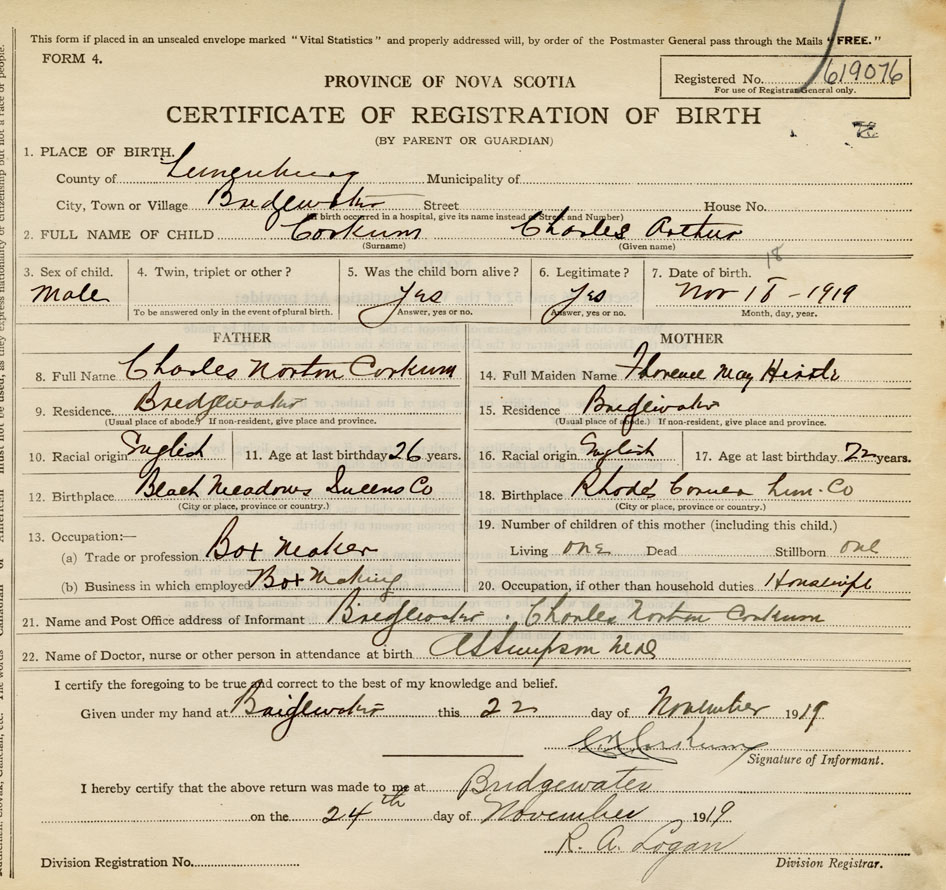 This form if placed in an unsealed envelope marked "Vital Statistics" and properly addressed will, by order of the Postmaster General pass through the Mails "FREE."
FORM 4.
PROVINCE OF NOVA SCOTIA
Registered No. 619076
For use of Registrar General only.
CERTIFICATE OF REGISTRATION OF BIRTH
(BY PARENT OR GUARDIAN)
1. PLACE OF BIRTH.
County of Lunenburg Municipality of
City, Town or Village Bridgewater Street House No.
(If birth occurred in a hospital, give its name instead of Street and Number)
2. FULL NAME OF CHILD Corkum Charles Arthur
(Surname) (Given name)
18
3. Sex of child. 4. Twin, triplet or other? 5. Was the child born alive? 6. Legitimate? 7. Date of birth.
Male Yes Yes Nov 18 - 1919
To be answered only in the event of plural birth. Answer, yes or no. Answer, yes or no. Month, day, year.
FATHER MOTHER
8. Full Name Charles Norton Corkum 14. Full Maiden Name Florence May Hirtle
9. Residence. Bridgewater 15. Residence Bridgewater
(Usual place of abode.) If non-resident, give place and province. (Usual place of abode.) If non-resident, give place and province.
10. Racial origin English 11. Age at last birthday 26 years. 16. Racial origin English 17. Age at last birthday 22 years.
12. Birthplace Meadows Queens Co 18. Birthplace Rhodes Corner Lun. Co
(City or place, province or country.) (City or place, province or country.)
13. Occupation:— 19. Number of children of this mother (including this child.)
(a) Trade or profession Box Maker Living one Dead Stillborn one
(b) Business in which employed Box Making 20. Occupation, if other than household duties Housewife
21. Name and Post Office address of Informant Bridgewater Charles Norton Corkum
22. Name of Doctor, nurse or other person in attendance at birth
I certify the foregoing to be true and correct to the best of my knowledge and belief.
Given under my hand at Bridgewater this 22 day of November 1919
Corkum
Signature of Informant.
I hereby certify that the above return was made to me at Bridgewater
on the 24th day of November 1919
R. A. Logan
Division Registration No. Division Registrar.